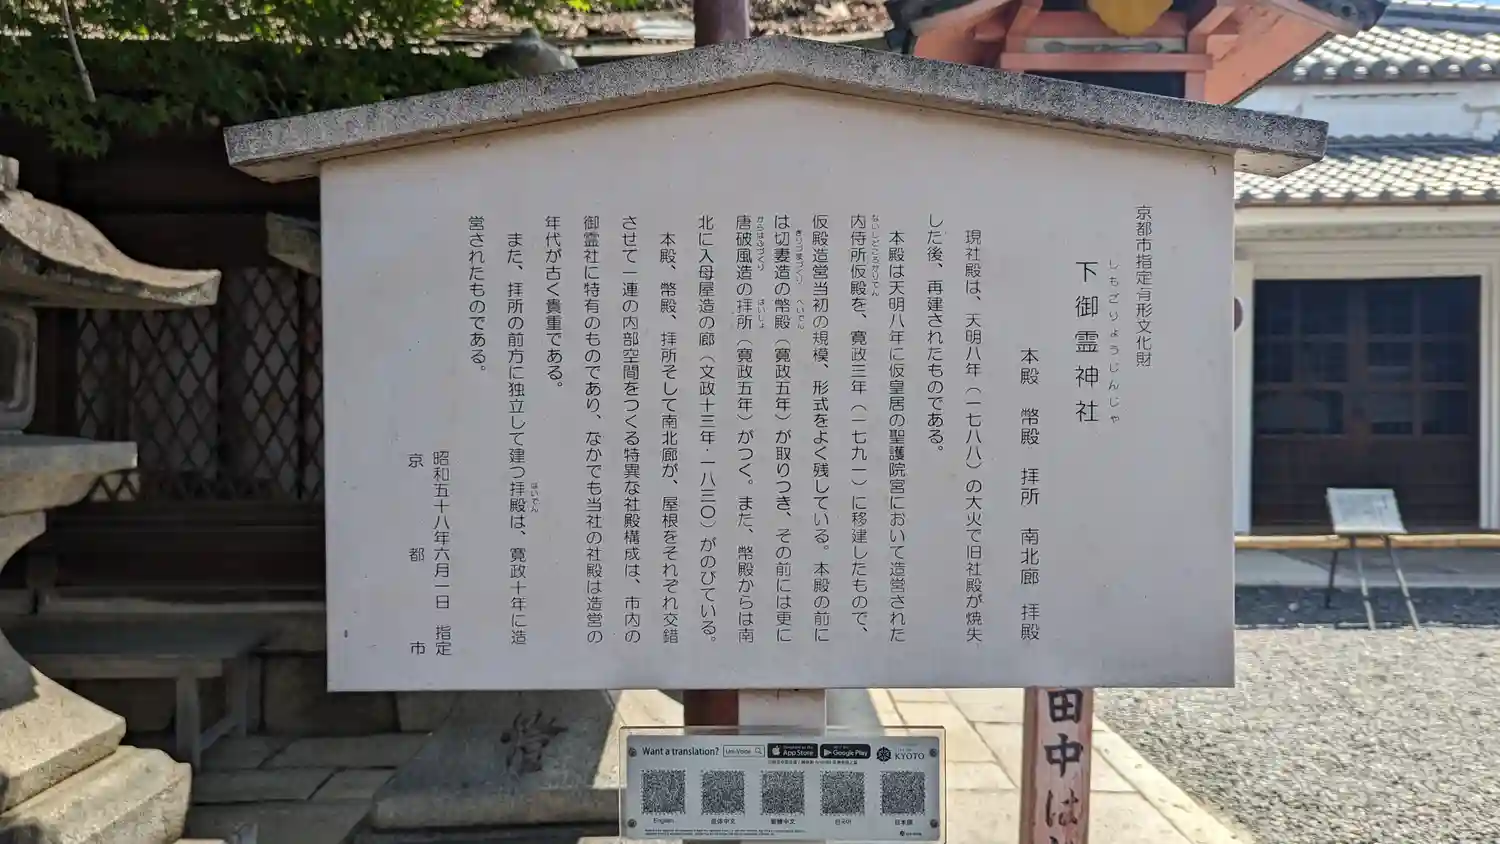 京都市指定有形文化財
しもごりょうじんじゃ
下御霊神社
本殿 幣殿 拝所 南北廊 拝殿
現社殿は、天明八年（一七八八）の大火で旧社殿が焼失
した後、再建されたものである。
本殿は天明八年に仮皇居の聖護院宮において造営された
ないしどころかりでん
内侍所仮殿を、寛政三年（一七九一）に移建したもので、
仮殿造営当初の規模、形式をよく残している。本殿の前に
きりづまづくり へいでん
は切妻造の幣殿（寛政五年）が取りつき、その前には更に
からはふづくり はいしょ
唐破風造の拝所（寛政五年）がつく。また、幣殿からは南
北に入母屋造の廊（文政十三年・一八三〇）がのびている。
本殿、幣殿、拝所そして南北廊が、屋根をそれぞれ交錯
させて一連の内部空間をつくる特異な社殿構成は、市内の
御霊社に特有のものであり、なかでも当社の社殿は造営の
年代が古く貴重である。
はいでん
また、拝所の前方に独立して建つ拝殿は、寛政十年に造
営されたものである。
昭和五十八年六月一日 指定
京都市
田中は
Want a translation? Uni-Voice App Store Google Play KYOTO
English 简体中文 繁體中文 한국어 日本語